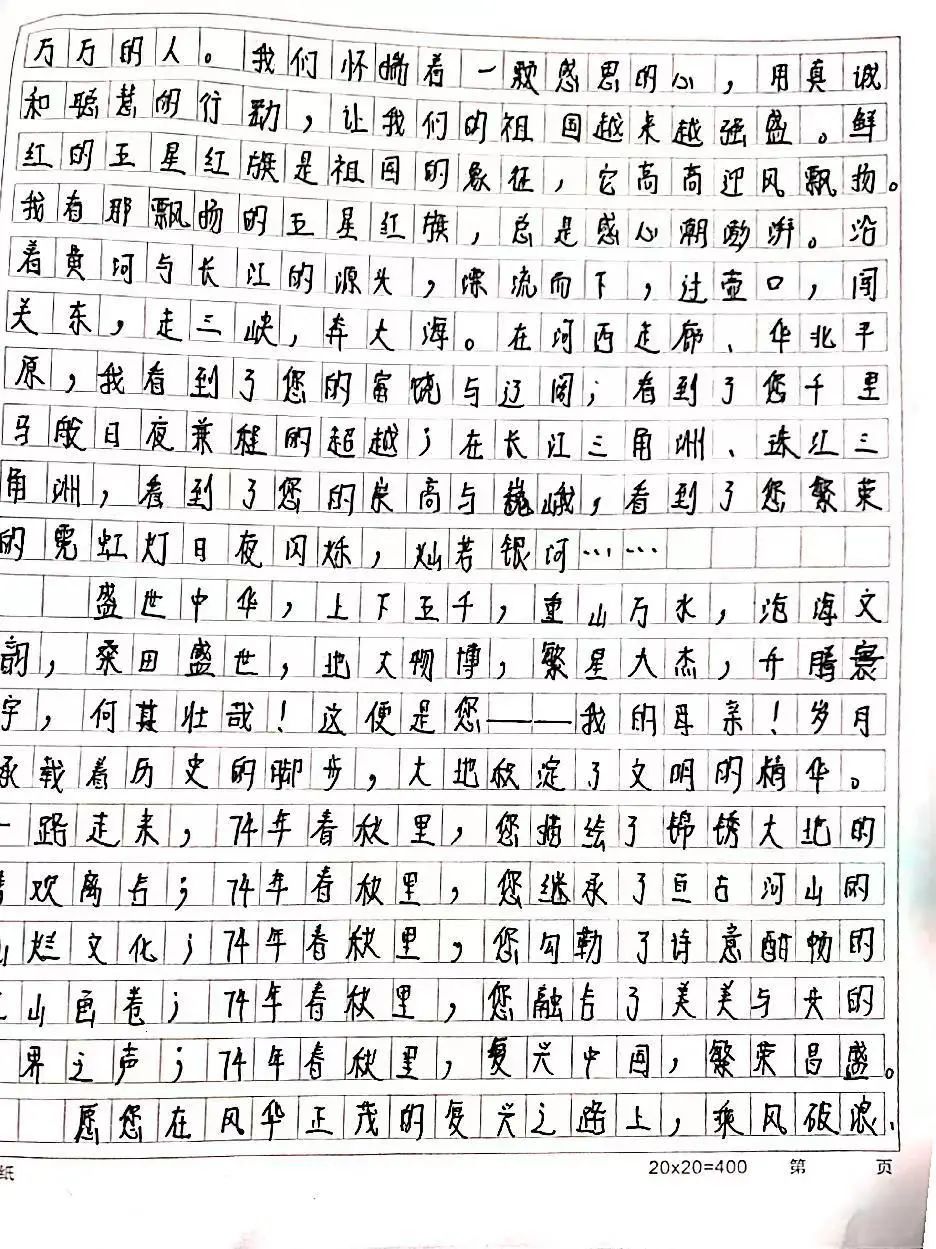 万万的人。我们怀揣着一颗感恩的心，用真诚
和聪慧的行动，让我们的祖国越来越强盛。鲜
红的五星红旗是祖国的象征，它高高迎风飘扬。
我看那飘扬的五星红旗，总是感心潮澎湃。沿
着黄河与长江的源头，漂流而下，过壶口，闯
关东，走三峡，奔大海。在河西走廊、华北平
原，我看到了您的富饶与辽阔；看到了您千里
马般日夜兼程的超越；在长江三角洲、珠江三
角洲，看到了您的崇高与巍峨，看到了您繁荣
的霓虹灯日夜闪烁，灿若银河……
盛世中华，上下五千，重山万水，沧海文
韵，桑田盛世，地大物博，繁星人杰，升腾寰
宇，何其壮哉！这便是您——我的母亲！岁月
承载着历史的脚步，大地积淀了文明的精华。
一路走来，74年春秋里，您描绘了锦绣大地的
欢离合；74年春秋里，您继承了亘古河山的
烂文化；74年春秋里，您勾勒了诗意酣畅的
山画卷；74年春秋里，您融合了美美与共的
界之声；74年春秋里，复兴中国，繁荣昌盛。
愿您在风华正茂的复兴之路上，乘风破浪、
纸 20x20=400 第 页